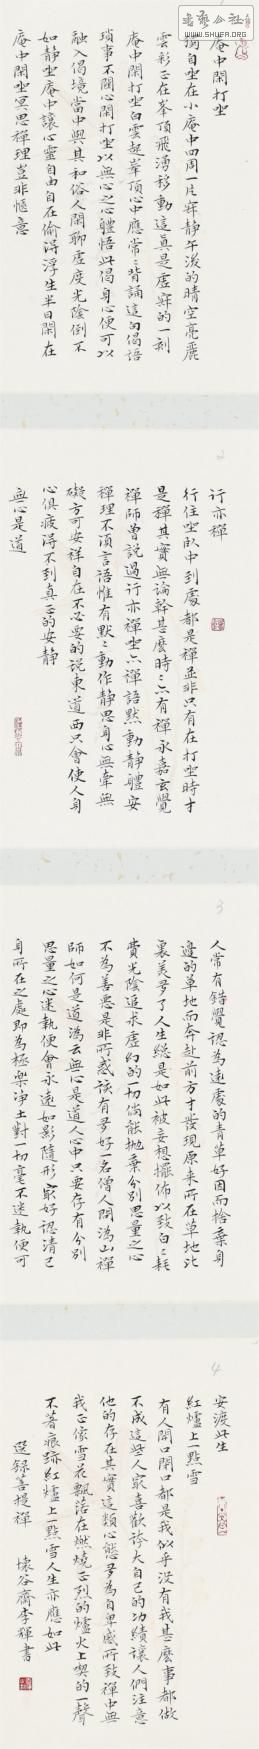 書藝公社
www.SHUFA.ORG
庵中閒打坐
獨自坐在小庵中四周一片寂静午後的晴空亮麗
雲彩正在峯頂飛湧移動這真是虛寂的一刻
庵中閒打坐白雲起峯頂心中應常々背誦這句偈語
瑣事不關心閒打坐以無心之心體悟此偈身心便可以
融入偈境當中與其和俗人閒聊虛度光陰倒不
如静坐庵中讓心靈自由自在偷得浮生半日閒在
庵中閒坐冥思禪理豈非愜意
2
行亦禪
行住坐臥中到處都是禪並非只有在打坐時才
是禪其實無論幹甚麽時々亦有禪永嘉玄覺
禪師曾說過行亦禪坐亦禪語默動静體安
禪理不須言語惟有默々動作静思身心無牽無
礙方可安祥自在不必要的說東道西只會使人身
心俱疲得不到真正的安静
無心是道
3
人常有錯覺認為遠處的青草好因而捨棄身
邊的草地而奔赴前方才發現原來所在草地比
裏美多了人生總是如此被妄想擺佈以致白々耗
費光陰追求虛幻的一切倘能抛棄分別思量之心
不為善惡是非所惑該有多好一名僧人問溈山禪
師如何是道溈云無心是道人心中只要存有分別
思量之心迷執便會永遠如影隨形最好認清己
身所在之處即為極樂净土對一切毫不迷執便可
4
安渡此生
紅爐上一點雪
有人開口閉口都是我似乎没有我甚麽事都做
不成這些人最喜歡誇大自己的功績讓人們注意
他的存在其實這類心態多為自卑感所致禪中無
我正像雪花飄落在燃燒正烈的爐火上喫的一聲
不著痕跡紅爐上一點雪人生亦應如此
選録菩提禪 懷谷齋李輝書